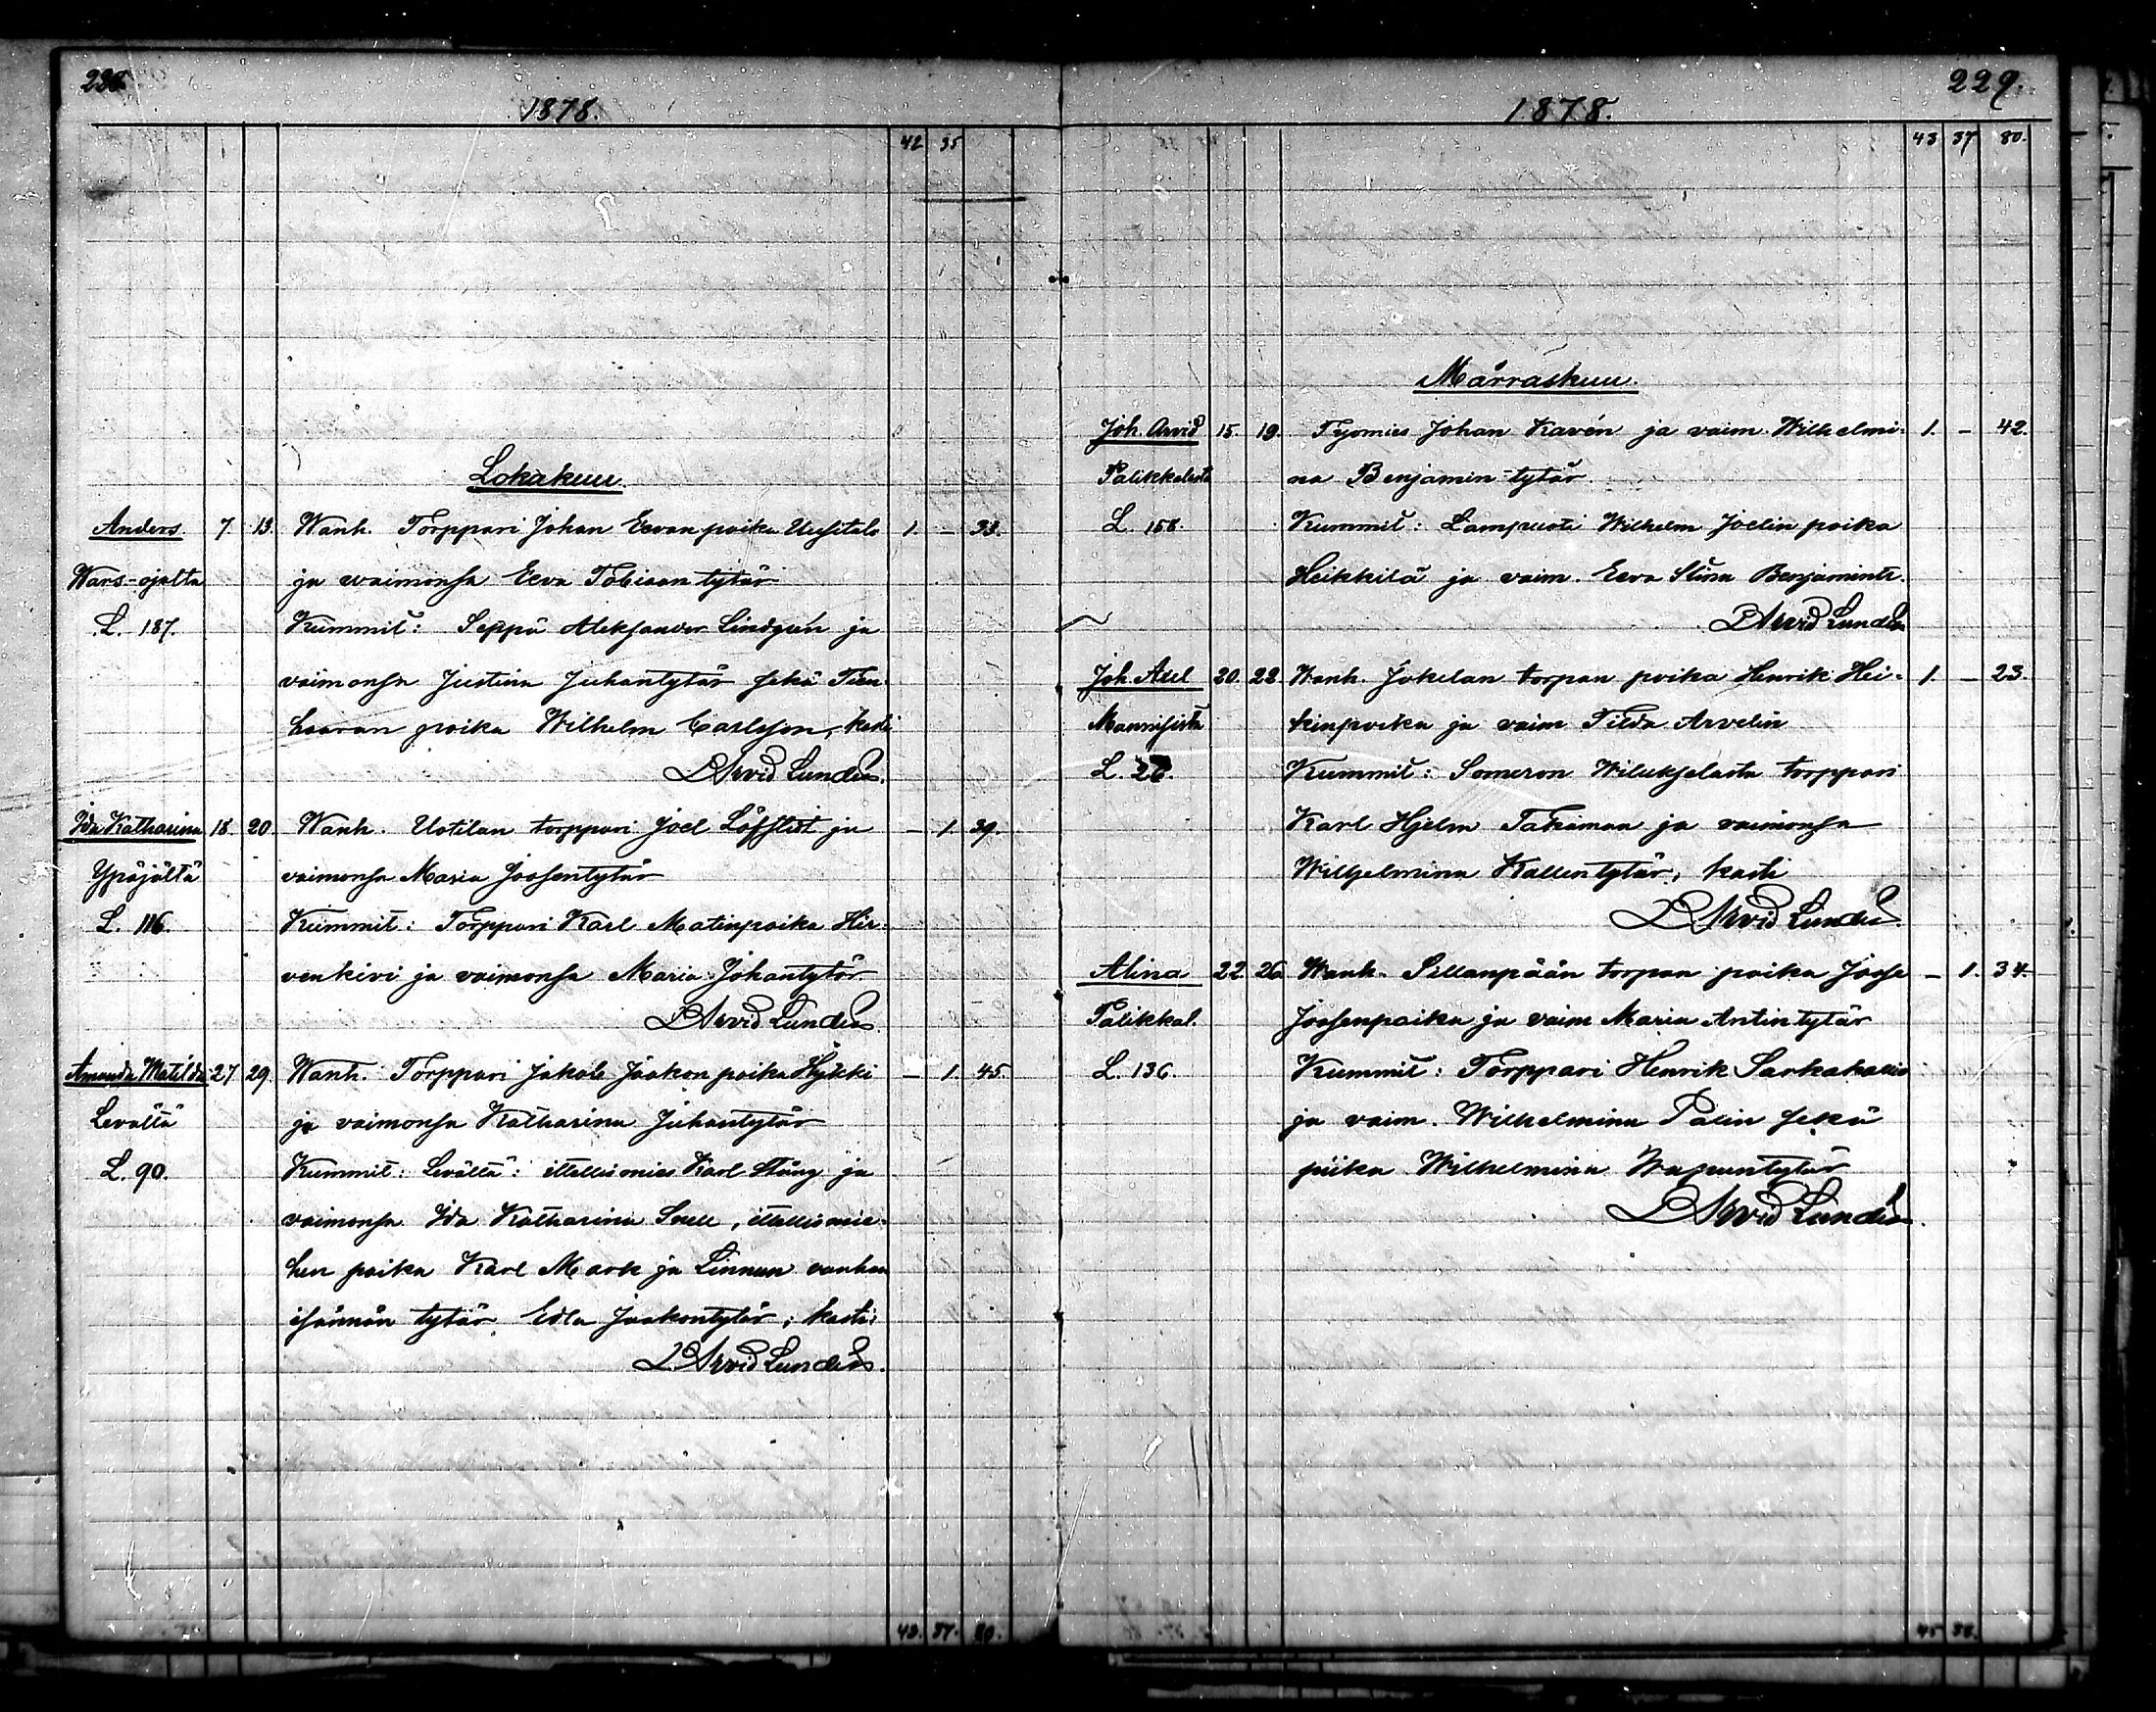 228
1878.
42 35
Lokakuu.
Anders. 7. 13. Wanh. Torppari Johan Eevan poika Uusitalo 1. - 33.
Wars-ojalta ja vaimonsa Eeva Tobiaan tytär
L. 187. Kummit: Seppä Aleksander Lindgren ja
vaimonsa Justina Juhantytär sekä Tien-
haaran poika Wilhelm Carlsson, kasti
Arvid Lundén.
Ida Katharina 18. 20. Wanh. Uotilan torppari Joel Löfstet ja - 1. 39.
Ypäjältä vaimonsa Maria Joosentytär
L. 116. Kummit: Torppari Karl Matinpoika Hir-
venkivi ja vaimonsa Maria Johantytär
Arvid Lundén.
Amanda Matilda 27 29. Wanh. Torppari Jakob Jaakon poika Hykki - 1. 45.
Levältä ja vaimonsa Katharina Juhantytär
L. 90. Kummit: Levältä: itellismies Karl Stång ja
vaimonsa Ida Katharina Snell, itellismie-
hen poika Karl Mark ja Linnun vanhan
isännän tytär Edla Jaakontytär; kasti:
Arvid Lundén.
43. 37. 80.
229.
1878.
43 37 80.
Marraskuu.
Joh. Arvid 15. 19. Työmies Johan Kavén ja vaim. Wilhelmi- 1. - 42.
Palikkalasta na Benjamin-tytär
L. 158. Kummit: Lampuoti Wilhelm Joelin poika
Heikkilä ja vaim. Eeva Stina Benjamintr.
Arvid Lundén
Joh. Axel 20. 22. Wanh. Jokelan torpan poika Henrik Hei- 1. - 23.
Mannisista kinpoika ja vaim Tilda Arvelin
L. 26. Kummit: Someron Wiluksesta torppari
Karl Hjelm Takamaa ja vaimonsa
Wilhelmina Kallentytär, kasti
Arvid Lundén.
Alina 22. 26. Wanh. Sillanpään torpan poika Joose - 1. 34.
Palikkal. Joosenpoika ja vaim Maria Antintytär
L. 136. Kummit: Torppari Henrik Sarkaharju
ja vaim. Wilhelmina Palin sekä
piika Wilhelmina Wapuntytär
Arvid Lundén.
45 38.